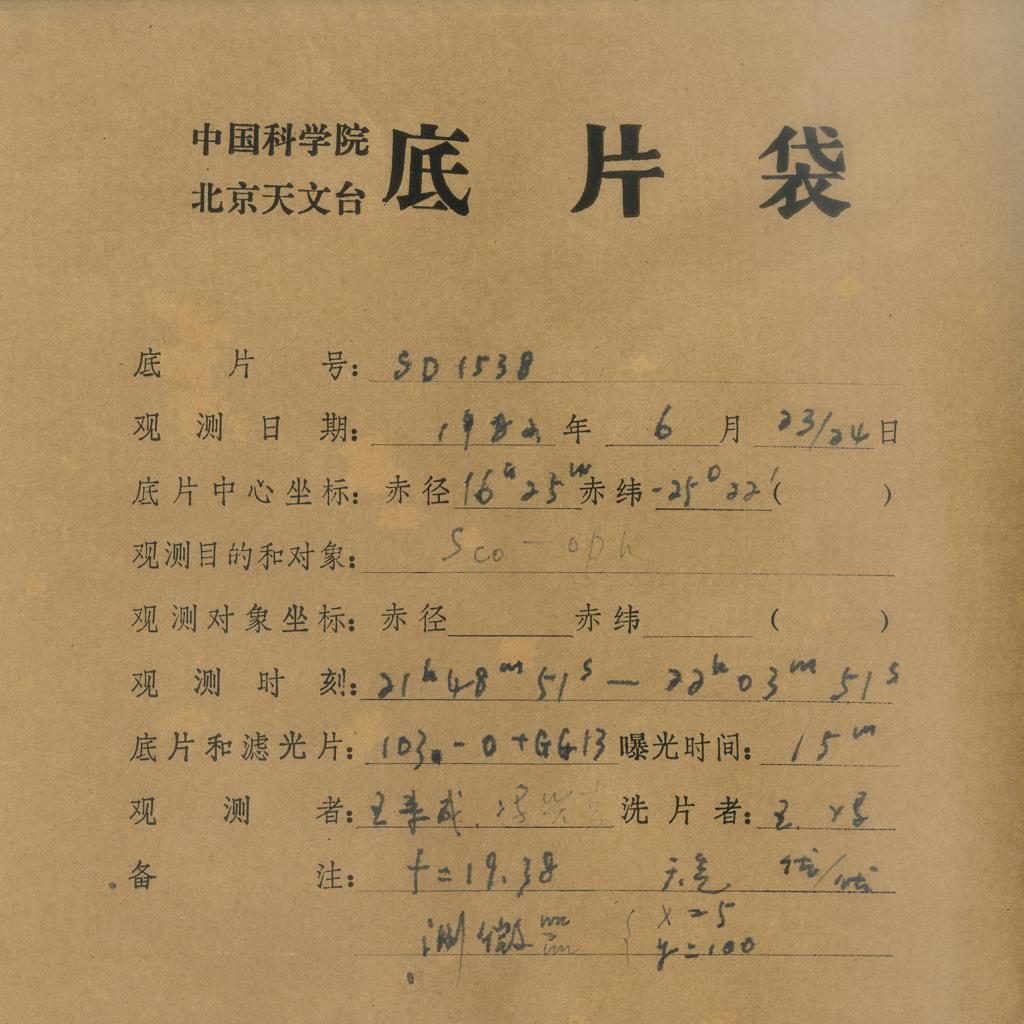 中国科学院
北京天文台
底片袋
底片号：SD1538
观测日期：1982年6月23/24日
底片中心坐标：赤径16h25m赤纬-25°22′( )
观测目的和对象：Sco-oph
观测对象坐标：赤径 赤纬 ( )
观测时刻：21h48m51s—22h03m51s
底片和滤光片：103a-O+GG13曝光时间：15m
观测者：王 洗片者：王
备注：f=19.38 天气
测微器 { x=5
y=100